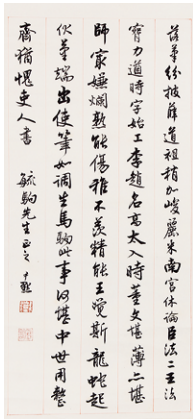 落筆紛披薛道祖稍加峻麗米南宮休論臣法二王法
腕力遒時字始工李趙名高太入時董文堪薄亦堪
師冣嫌爛熟能傷雅不羨精能王覺斯龍蛇起
伏筆端出使筆如調生馬駒此事何堪中世用整
齊猶愧吏人書
毓駒先生正之 尹默